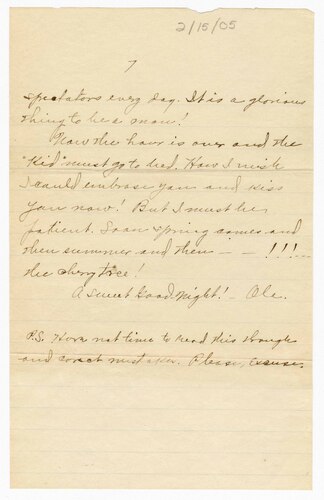 2/15/05
7
spectators every day. It is a glorious
thing to be a man!
Now the hour is over and the
"Kid" must go to bed. How I wish
I could embrase you and kiss
you now! But I must be
patient. Soon spring comes and
then summer and then – – !!!
the chery tree!
A sweet Good Night! – Ole.
P.S. Have not time to read this through
and corect mistakes. Please, excuse.